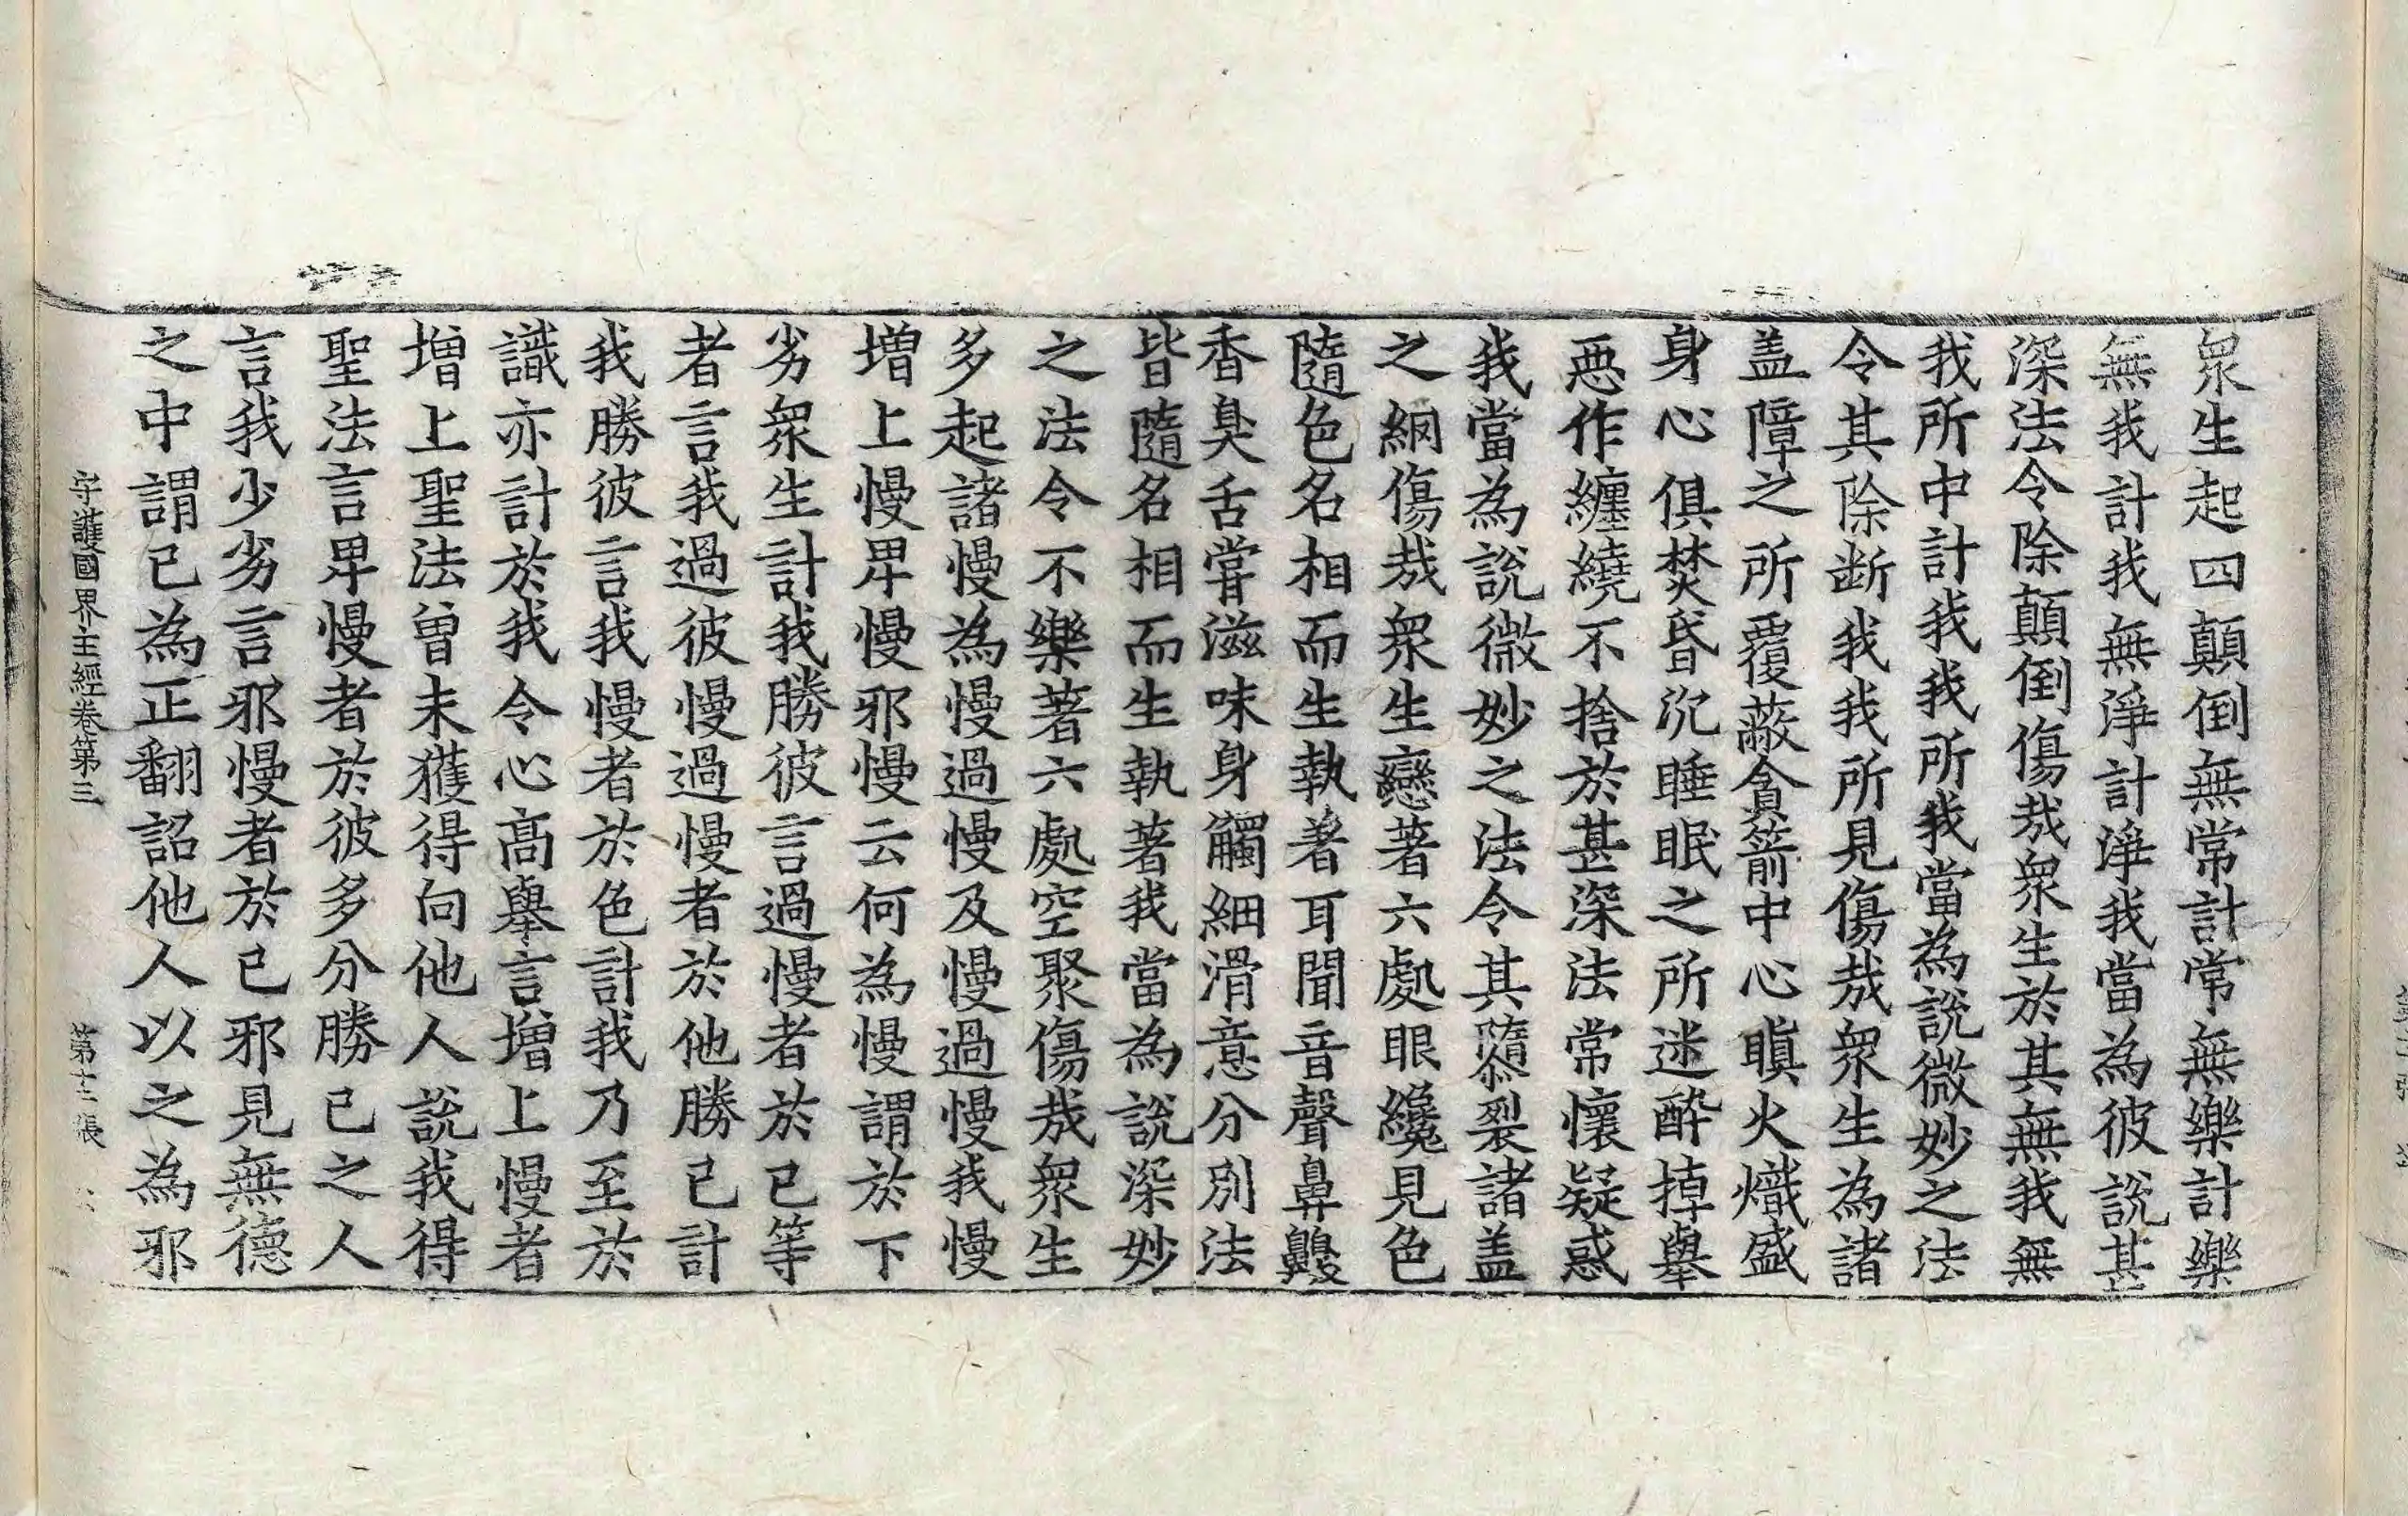 衆生起四顛倒無常計常無樂計樂
無我計我無淨計淨我當為彼說甚
深法令除顛倒傷哉衆生於其無我無
我所中計我我所我當為說微妙之法
令其除断我我所見傷哉衆生為諸
盖障之所覆蔽貪箭中心瞋火熾盛
身心俱焚昏沉睡眠之所迷醉掉擧
恶作纏繞不捨於甚深法常懷疑惑
我當為說微妙之法令其隳裂諸盖
之網傷哉衆生戀著六處眼纔見色
隨色名相而生執著耳聞音聲鼻齅
香臭舌甞滋味身觸細滑意分別法
皆隨名相而生執著我當為說深妙
之法令不樂著六處空聚傷哉衆生
多起諸慢為慢過慢及慢過慢我慢
增上慢卑慢邪慢云何為慢謂於下
劣衆生計我勝彼言過慢者於已等
者言我過彼慢過慢者於他勝已計
我勝彼言我慢者於色計我乃至於
識亦計於我令心高擧言增上慢者
增上聖法曾未獲得向他人說我得
聖法言卑慢者於彼多分勝已之人
言我少劣言邪慢者於已邪見無德
之中謂已為正翻謟他人以之為邪
守護國界主經卷第三 第十三張